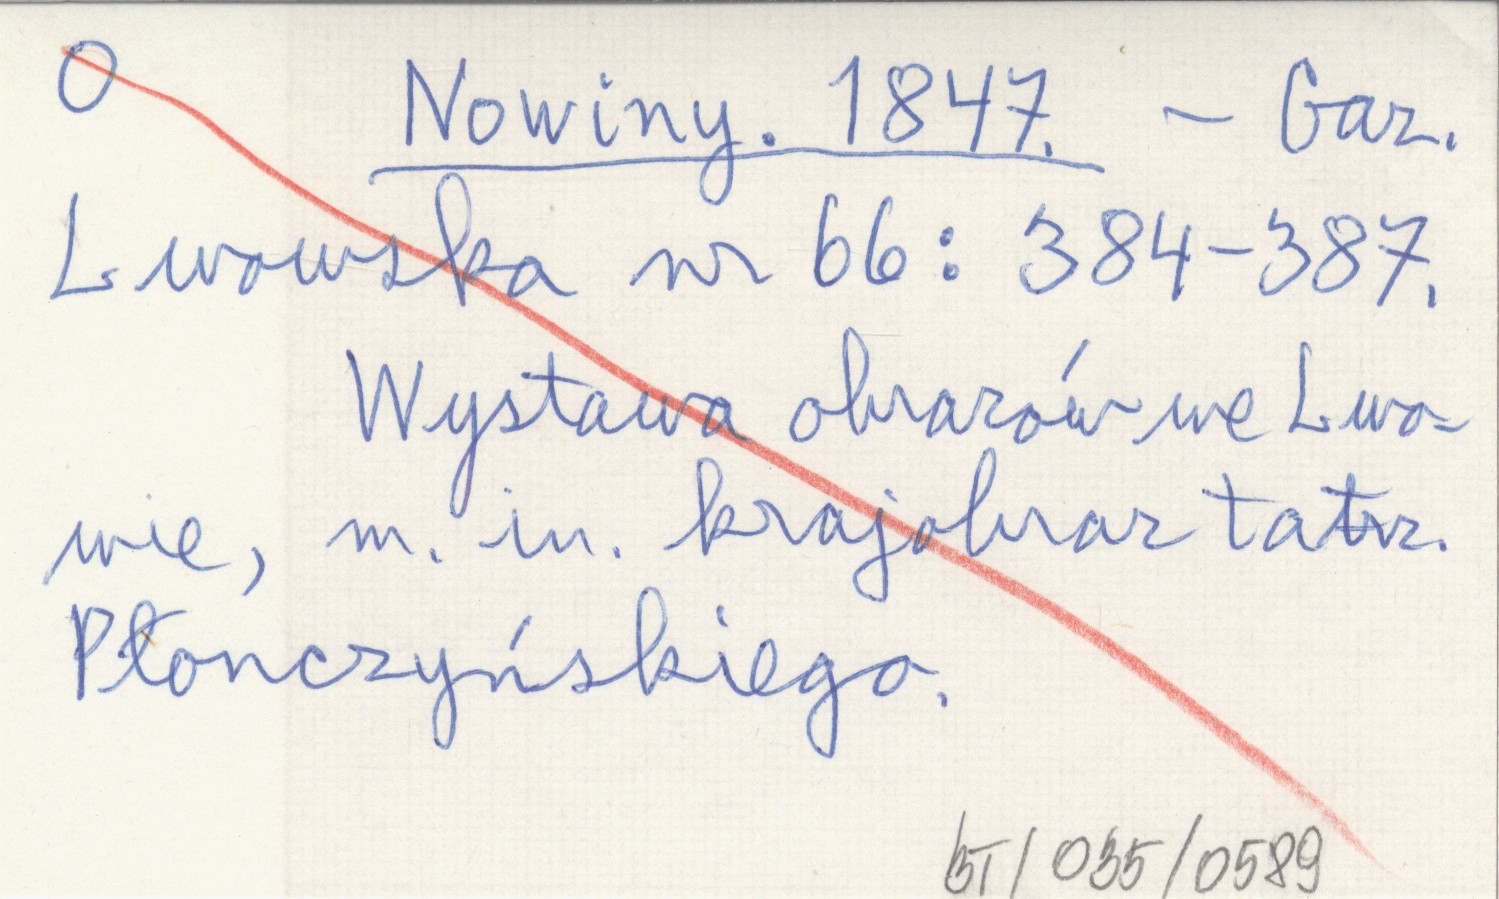 O Nowiny. 1847. - Gaz.
Lwowska nr 66: 384-387.
Wystawa obrazów we Lwo-
wie, m. in. krajobraz tatrz.
Płonczyńskiego.
BT/035/0589